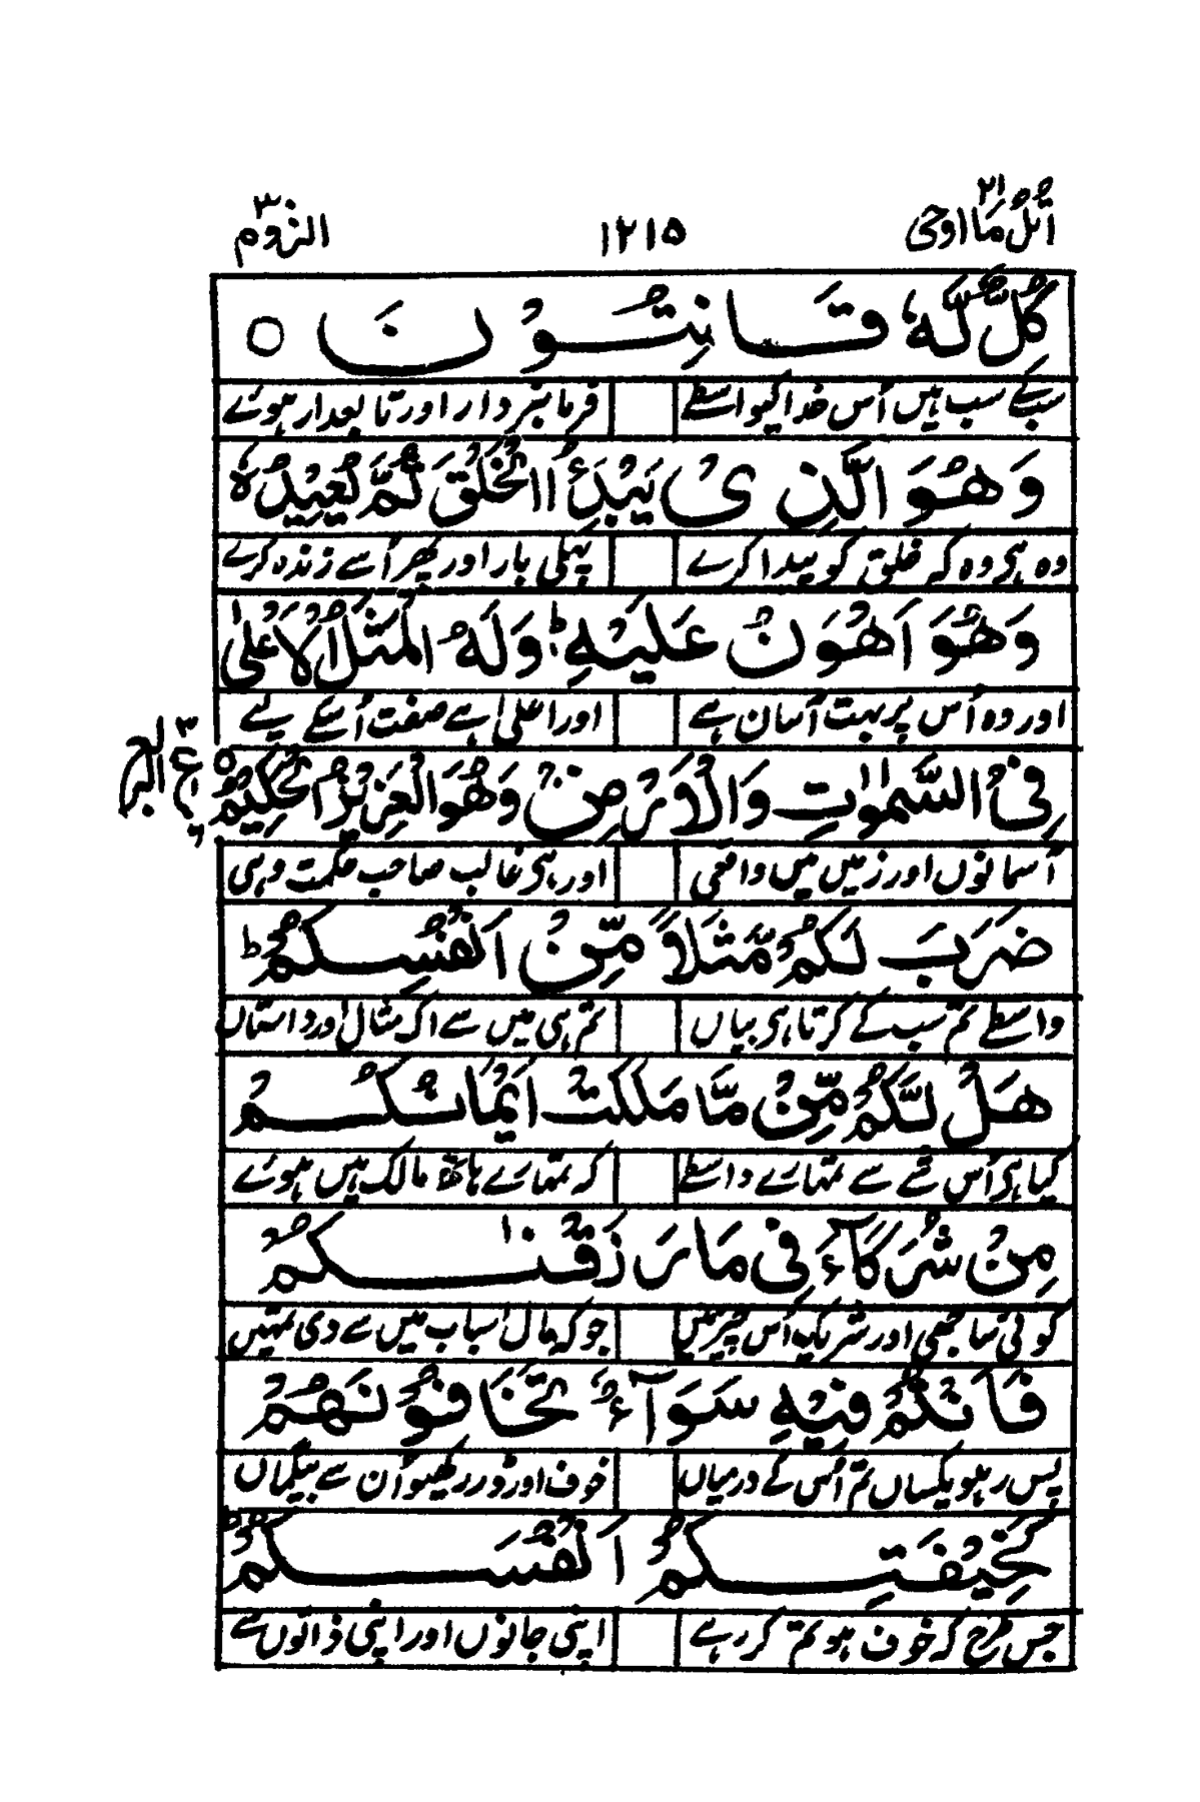 اُتْلُ مَا اُوحِیَ ۲۱ ۱۲۱۵ الروم ۳۰
كُلٌّ لَّهٗ قَانِتُوْنَ ○
سب کے سب ہیں اُس خدا کیواسطے فرمانبردار اور تابعدار ہوئے
وَهُوَ الَّذِیْ یَبْدَؤُا الْخَلْقَ ثُمَّ یُعِیْدُهٗ
وہ ہی وہ کہ خلق کو پیدا کرے پہلی بار اور پھر اُسے زندہ کرے
وَهُوَ اَهْوَنُ عَلَیْهِ ؕ وَلَهُ الْمَثَلُ الْاَعْلٰی
اور وہ اُس پر بہت آسان ہے اور اعلیٰ ہے صفت اُسکے لیے
فِی السَّمٰوٰتِ وَالْاَرْضِ وَهُوَ الْعَزِیْزُ الْحَكِیْمُ ○
آسمانوں اور زمیں میں واقعی اور ہی غالب صاحب حکمت وہی
ضَرَبَ لَكُمْ مَّثَلًا مِّنْ اَنْفُسِكُمْ ؕ
واسطے تم سب کے کرتا ہی بیاں تم ہی میں سے اک مثال اور داستاں
هَلْ لَّكُمْ مِّنْ مَّا مَلَكَتْ اَیْمَانُكُمْ
کیا ہی اُس شے سے تمہارے واسطے کہ تمہارے ہاتھ مالک ہیں ہوئے
مِنْ شُرَكَآءَ فِیْ مَا رَزَقْنٰكُمْ
کوئی ساجھی اور شریک اُس چیز میں جو کہ مال اسباب میں سے دی تمہیں
فَاَنْتُمْ فِیْهِ سَوَآءٌ تَخَافُوْنَهُمْ
پس رہو یکساں تم اُس کے درمیاں خوف اور ڈر رکھیو اُن سے بیگماں
كَخِیْفَتِكُمْ اَنْفُسَكُمْ ؕ
جس طرح کہ خوف ہو تم کر رہے اپنی جانوں اور اپنی ذاتوں سے